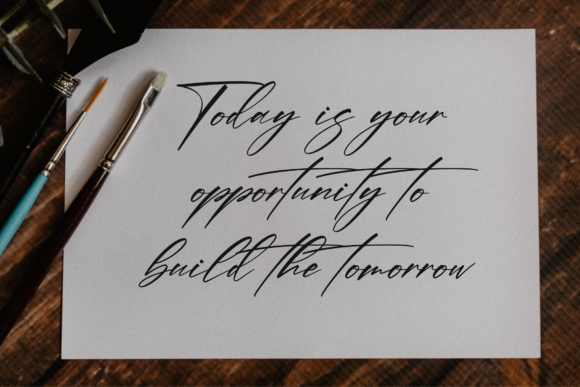 Today is your
opportunity to
build the tomorrow